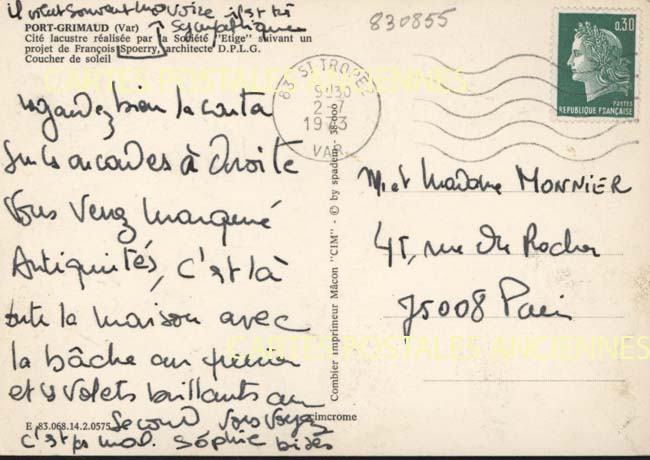 il vient souvent me voir il est très
sympathique
PORT-GRIMAUD (Var)
Cité lacustre réalisée par la Société "Etige" suivant un
projet de François Spoerry, architecte D.P.L.G.
Coucher de soleil
830855
0,30
POSTES
REPUBLIQUE FRANÇAISE
83 ST TROPEZ
9H30
2-7
1973
VAR
CARTES POSTALES ANCIENNES
regardez bien la carte
sur les arcades à droite
vous verrez marqué
Antiquités, c'est là
toute la maison avec
la bâche au premier
et les volets brillants au
second vous voyez
c'est pas mal. Sophie bises
M. et Madame MONNIER
45, rue du Rocher
75008 Paris
CARTES POSTALES ANCIENNES
Combier imprimeur Mâcon "CIM" - © by spadem - 38-000
E 83.068.14.2.0575
cimcrome